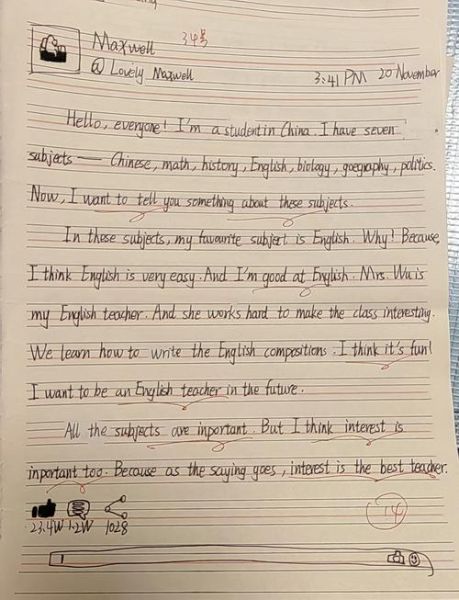 Maxwell 34号
@ Lovely Maxwell 3:41 PM 20 November
Hello, everyone! I'm a student in China. I have seven
subjects — Chinese, math, history, English, biology, goegraphy, politics.
Now, I want to tell you something about these subjects.
In these subjects, my favourite subject is English. Why? Because,
I think English is very easy. And I'm good at English. Mrs. Wu is
my English teacher. And she works hard to make the class interesting.
We learn how to write the English compositions. I think it's fun!
I want to be an English teacher in the future.
All the subjects are inportant. But I think interest is
inportant too. Because as the saying goes, interest is the best teacher.
23.4W 1.2W 1028
14